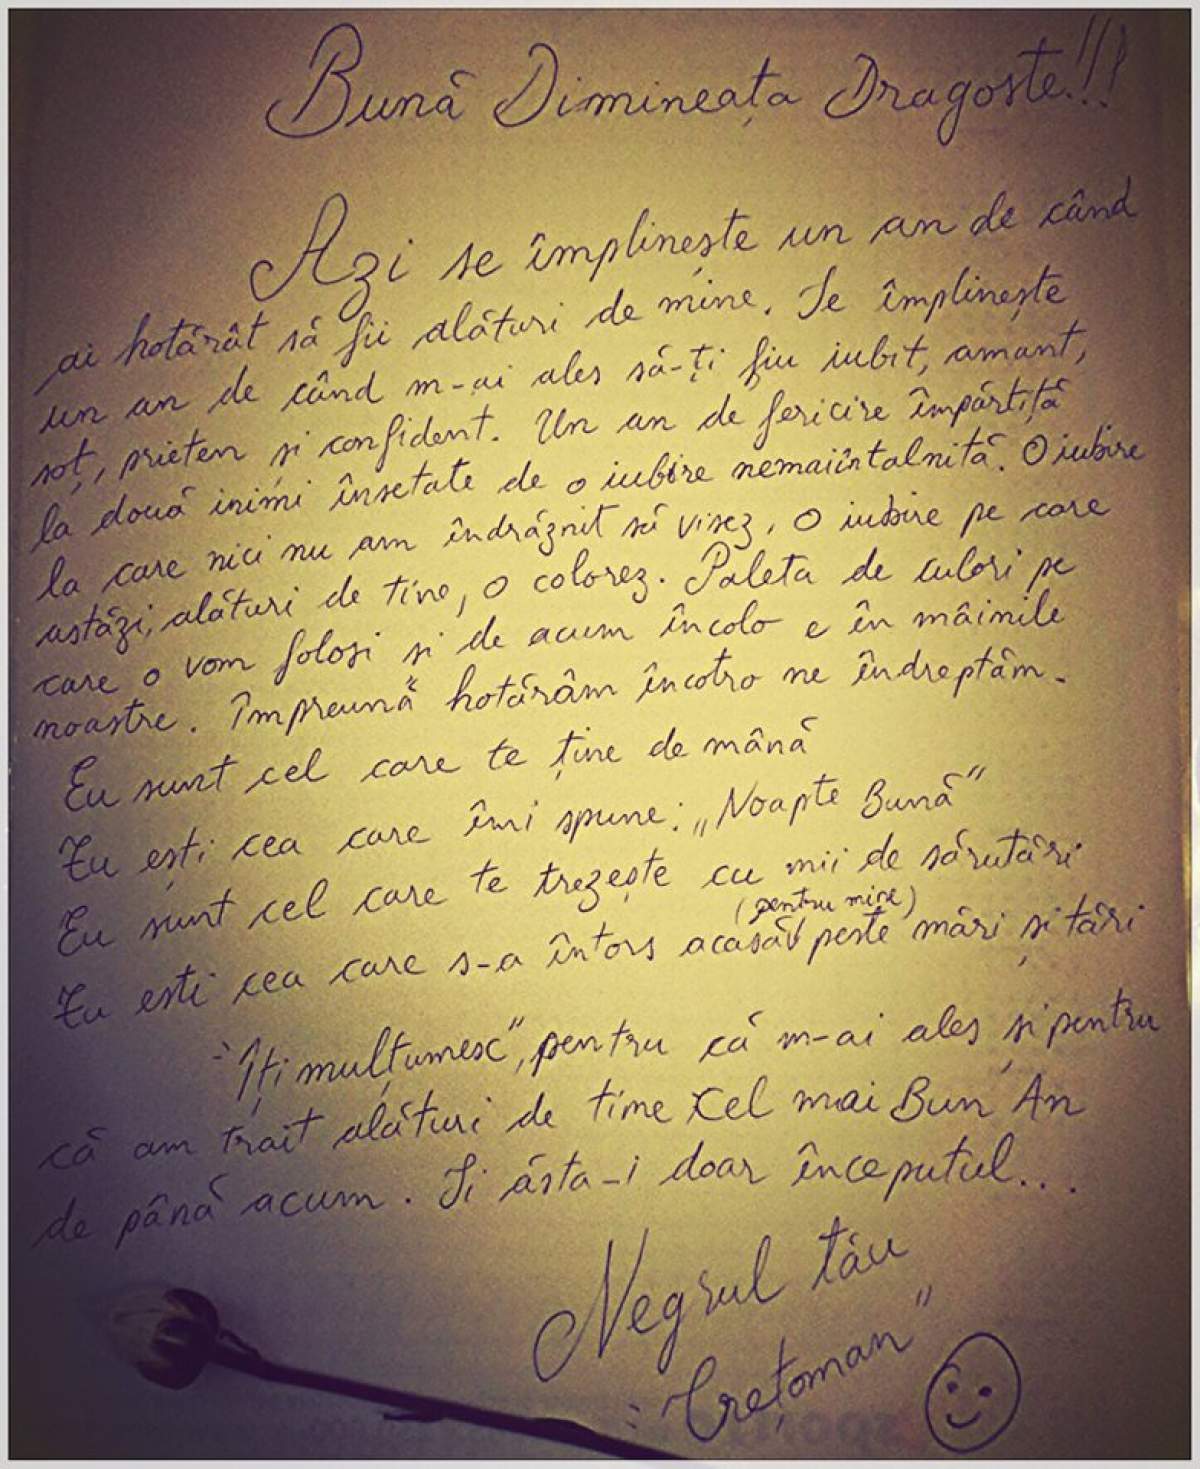 Bună Dimineața Dragoste!!!
Azi se împlinește un an de când
ai hotărât să fii alături de mine. Se împlinește
un an de când m-ai ales să-ți fiu iubit, amant,
soț, prieten și confident. Un an de fericire împărțită
la două inimi însetate de o iubire nemaiîntalnită. O iubire
la care nici nu am îndrăznit să visez. O iubire pe care
astăzi, alături de tine, o colorez. Paleta de culori pe
care o vom folosi și de acum încolo e în mâinile
noastre. Împreună hotărâm încotro ne îndreptăm.
Eu sunt cel care te ține de mână
Tu ești cea care îmi spune: „Noapte Bună"
Eu sunt cel care te trezește cu mii de sărutări
(pentru mine)
Tu esti cea care s-a întors acasă peste mări și tări
"Îți mulțumesc", pentru că m-ai ales și pentru
că am trait alături de tine cel mai Bun An
de până acum. Si ăsta-i doar începutul...
Negrul tău
"Crețoman"